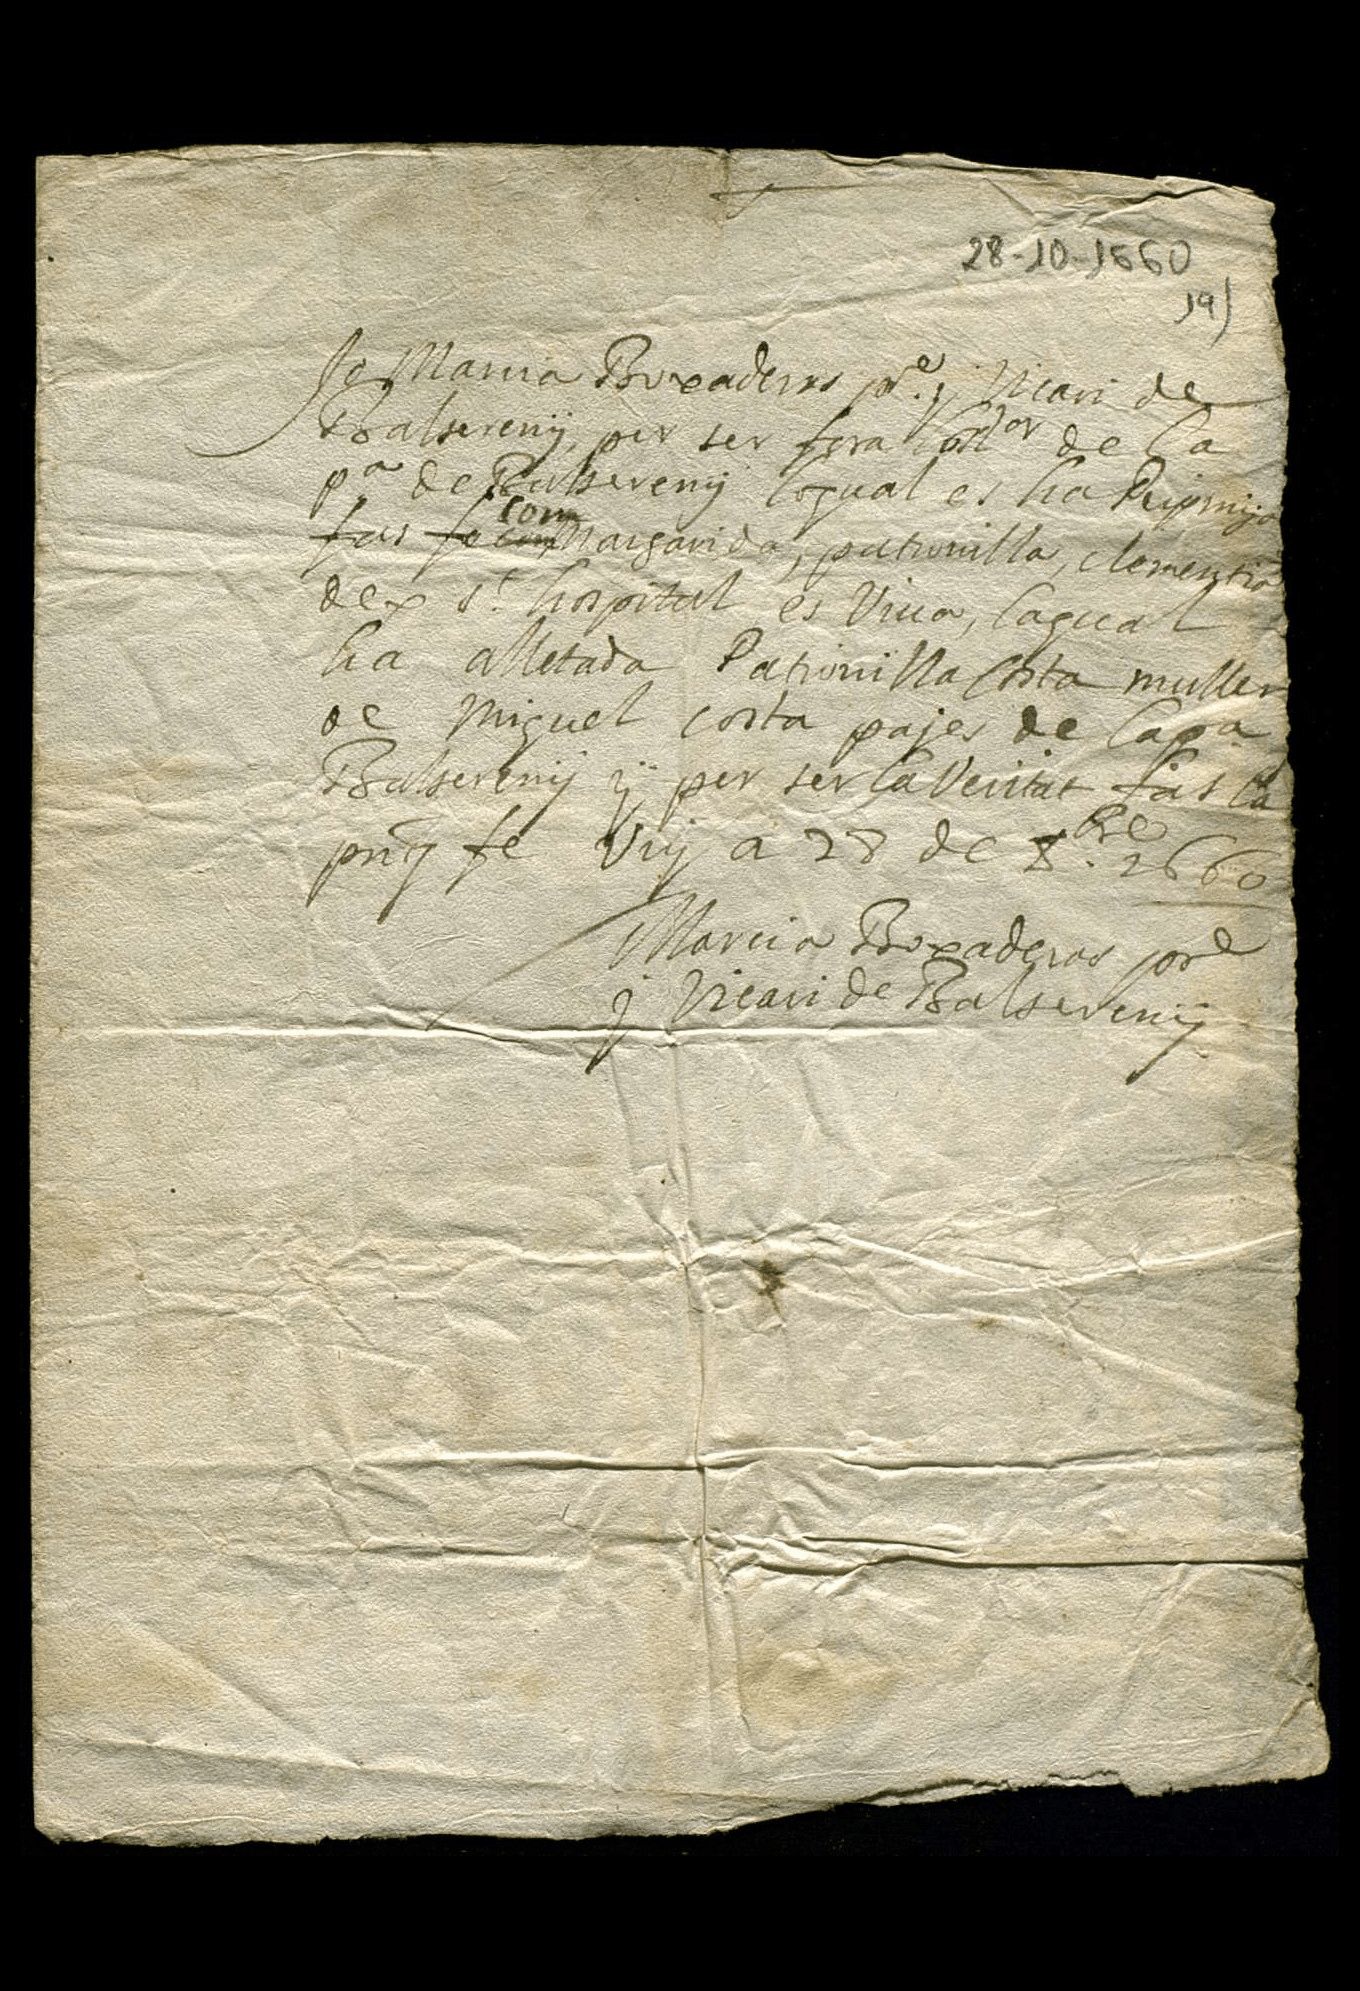 28-10-1660
19)
Jo Marcia Boxaderas pre. y Vicari de
Balsereny, per ser fora lo Ror de la
pa de Balsereny loqual es ha Puigmija
fas fe com Margarida, patronilla, clementia
dex st. hospital es viua, laqual
ha alletada Patronilla Costa muller
de Miguel costa pajes de la pa
Balsereny y per ser la veritat fas la
pnt fe Vuy a 28 de 8bre. 1660
Marcia Boxaderas pre
y Vicari de Balsereny